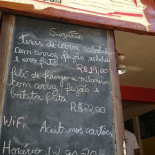 Sugestão
Tiras de carne acebolada
com arroz feijão salada
e ovo frito
R$ 19,00
filé de frango a milanesa
com arroz, feijão e
batata frita
R$ 22,00
WiFi Aceitamos cartões
Horário 12